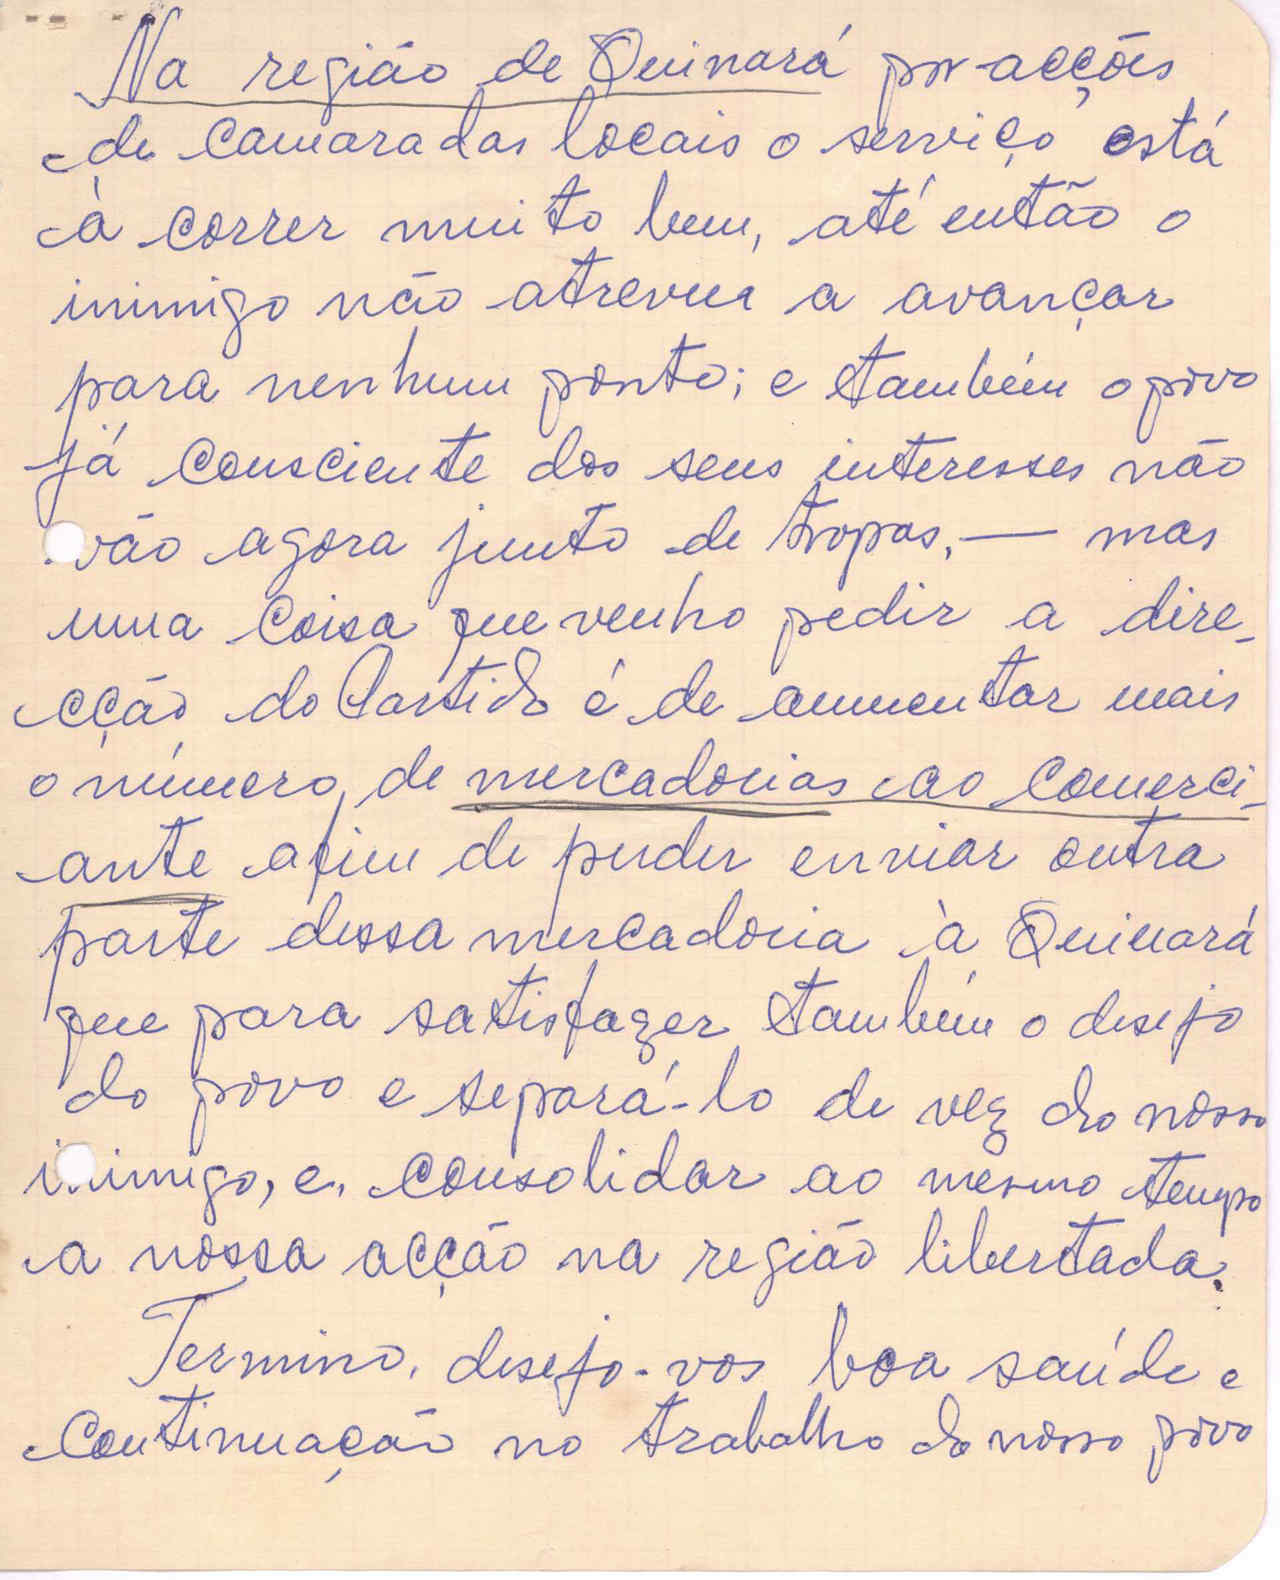 Na região de Quinará por acções
de camaradas locais o serviço está
à correr muito bem, até então o
inimigo não atreveu a avançar
para nenhum ponto; e também o povo
já consciente dos seus interesses não
vão agora junto de tropas, — mas
uma coisa que venho pedir a dire-
cção do Partido é de aumentar mais
o número de mercadorias ao comerci-
ante afim de puder enviar outra
parte dessa mercadoria à Quinará
que para satisfazer também o desejo
do povo e separá-lo de vez do nosso
inimigo, e, consolidar ao mesmo tempo
a nossa acção na região libertada.
Termino, desejo-vos boa saúde e
continuação no trabalho do nosso povo